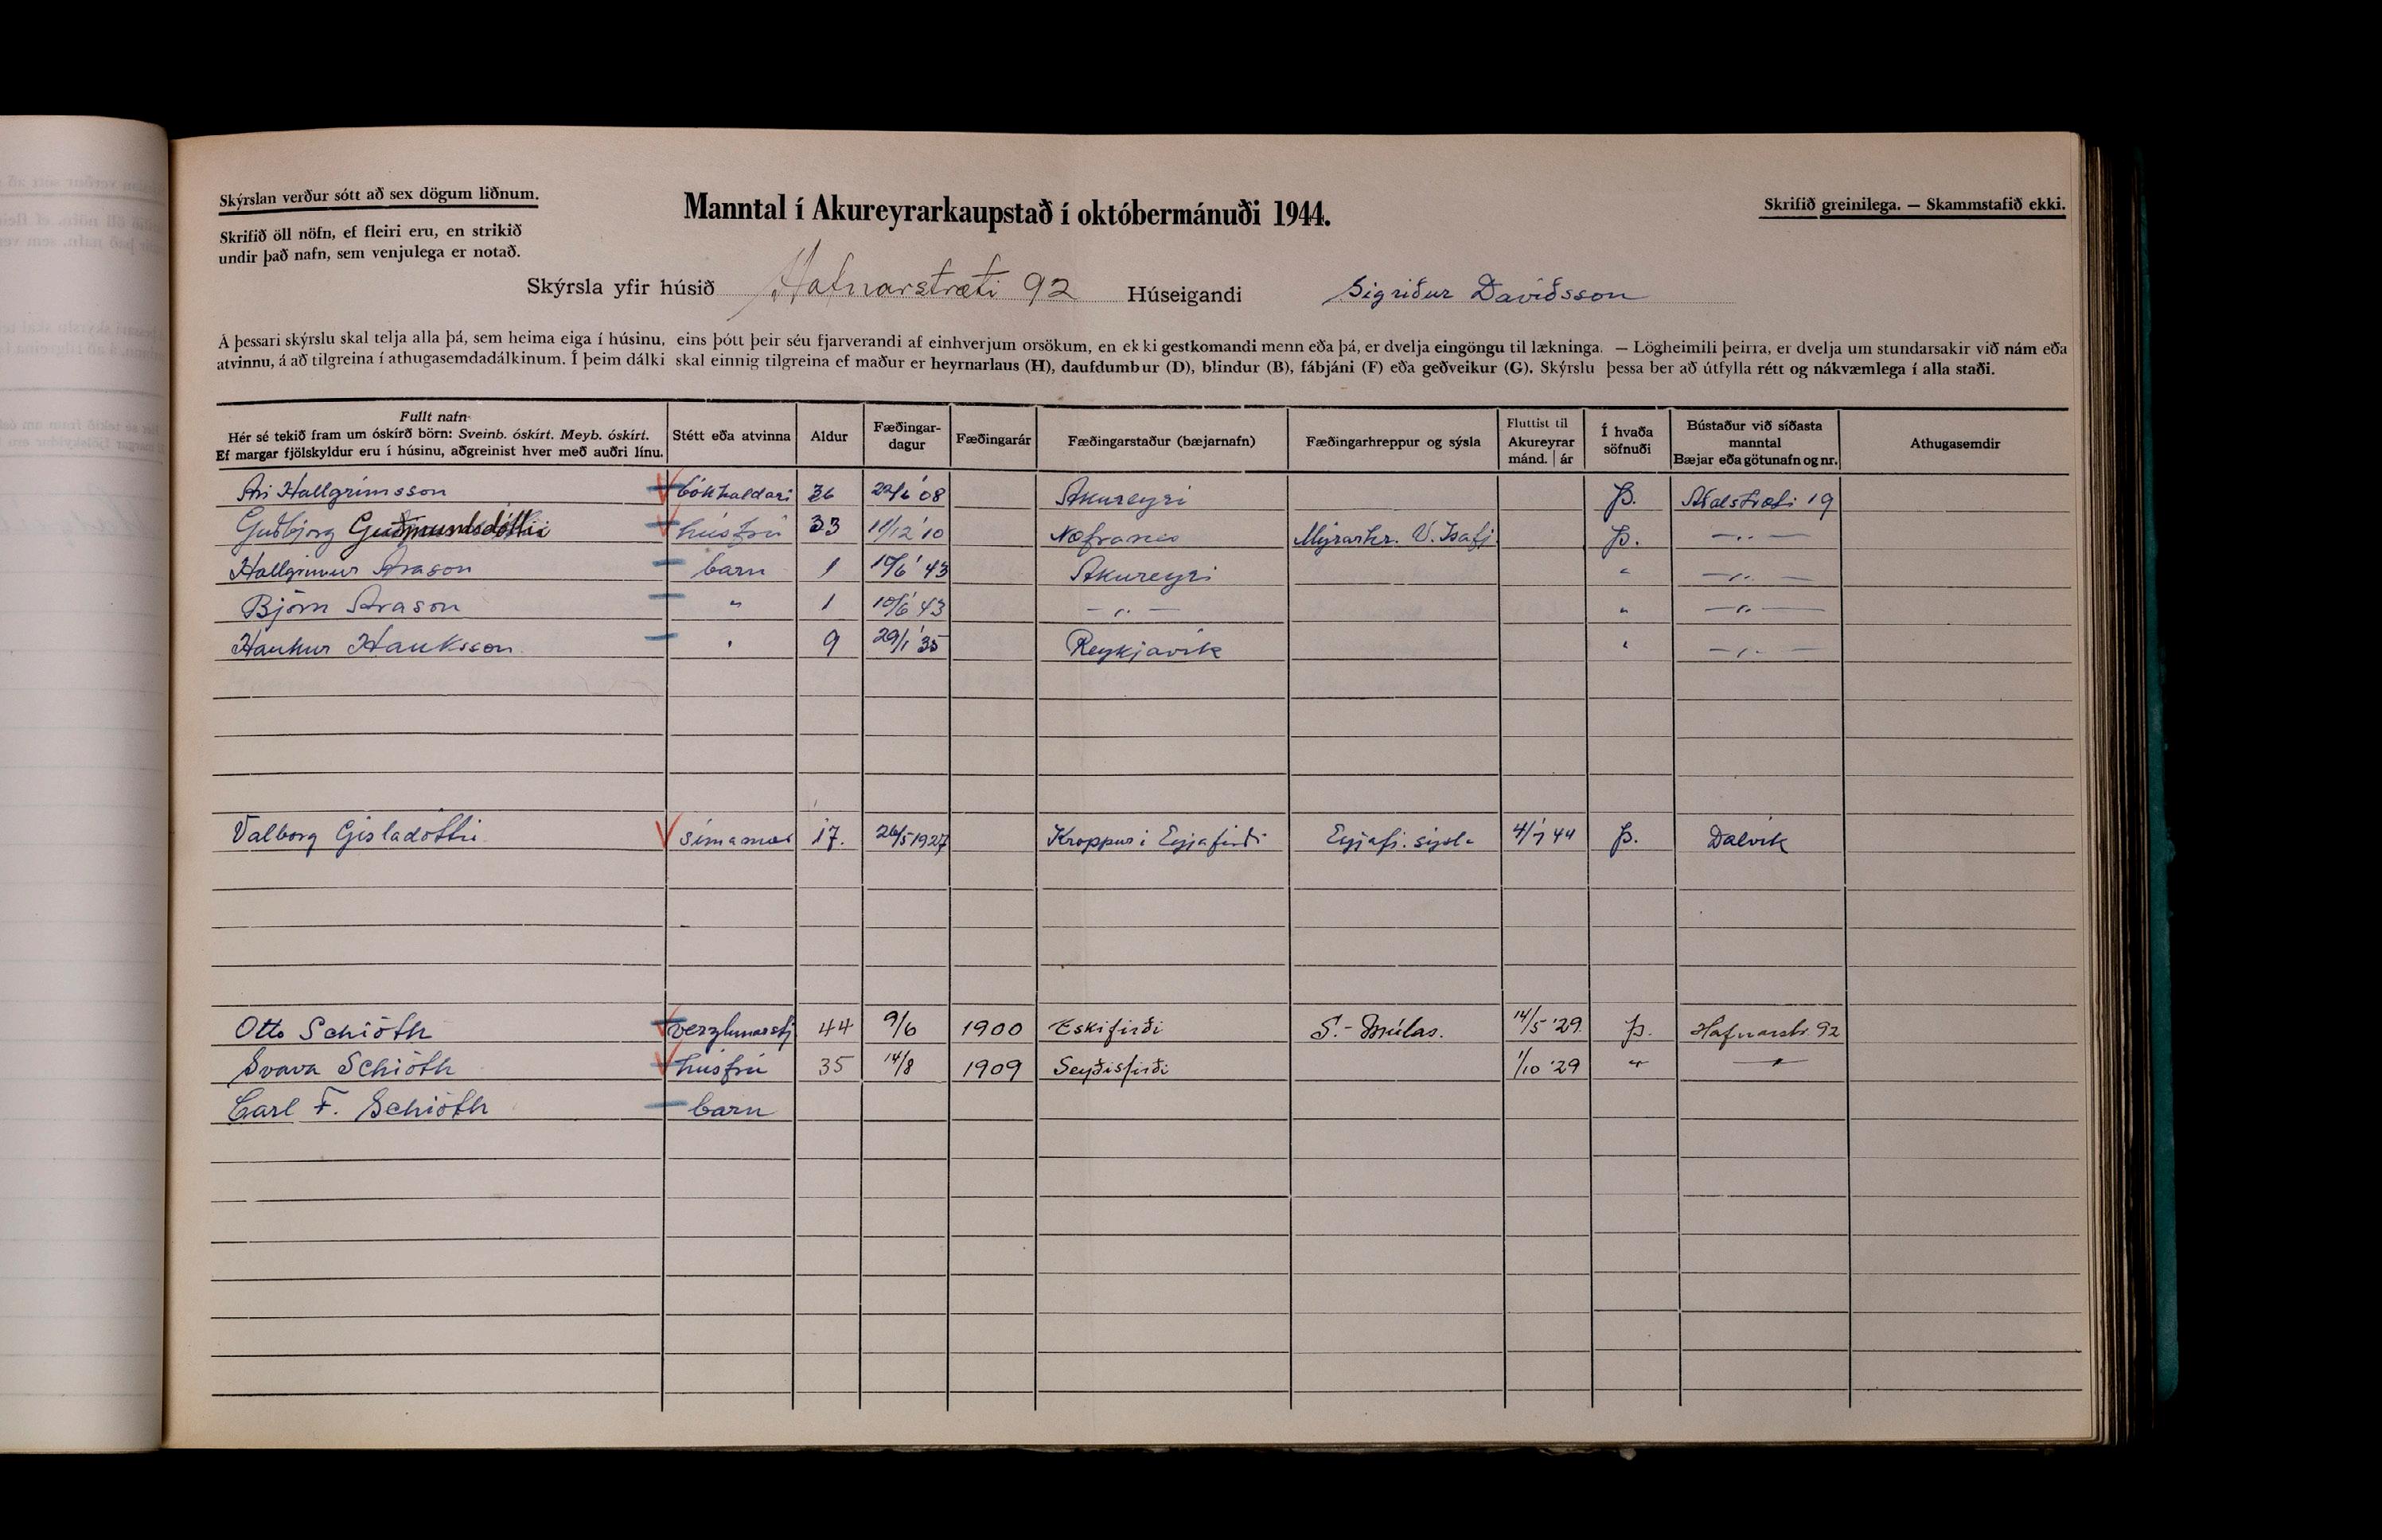 Skýrslan verður sótt að sex dögum liðnum.
Skrifið öll nöfn, ef fleiri eru, en strikið
undir það nafn, sem venjulega er notað.
Manntal í Akureyrarkaupstað í októbermánuði 1944.
Skrifið greinilega. — Skammstafið ekki.
Skýrsla yfir húsið Hafnarstræti 92 Húseigandi Sigríður Davíðsson
Á þessari skýrslu skal telja alla þá, sem heima eiga í húsinu, eins þótt þeir séu fjarverandi af einhverjum orsökum, en ekki gestkomandi menn eða þá, er dvelja eingöngu til lækninga. — Lögheimili þeirra, er dvelja um stundarsakir við nám eða
atvinnu, á að tilgreina í athugasemdadálkinum. Í þeim dálki skal einnig tilgreina ef maður er heyrnarlaus (H), daufdumbur (D), blindur (B), fábjáni (F) eða geðveikur (G). Skýrslu þessa ber að útfylla rétt og nákvæmlega í alla staði.
Fullt nafn
Hér sé tekið fram um óskírð börn: Sveinb. óskírt. Meyb. óskírt.
Ef margar fjölskyldur eru í húsinu, aðgreinist hver með auðri línu.
Stétt eða atvinna
Aldur
Fæðingar-
dagur
Fæðingarár
Fæðingarstaður (bæjarnafn)
Fæðingarhreppur og sýsla
Fluttist til
Akureyrar
mánd. | ár
Í hvaða
söfnuði
Bústaður við síðasta
manntal
Bæjar eða götunafn og nr.
Athugasemdir
Ari Hallgrímsson bókhaldari 36 22/6 '08 Akureyri Þ. Aðalstræti 19
Guðbjörg Guðmundsdóttir húsfrú 33 11/12 '10 Mýrarhr. V. Ísafj. Þ. -„-
Hallgrímur Arason barn 1 10/6 '43 Akureyri " -„-
Björn Arason " 1 10/6 '43 -„- " -„-
Haukur Hauksson " 9 29/1 '35 Reykjavík " -„-
Valborg Gísladóttir 17. 26/5 1927 Kroppur í Eyjafirði Eyjafj. sýsla 4/7 44 Þ. Dalvík
Otto Schiöth verzlunarstj 44 9/6 1900 Eskifirði S.- Múlas. 14/5 '29 Þ. Hafnarstr. 92
Svava Schiöth húsfrú 35 14/8 1909 Seyðisfirði 1/10 '29 " -"-
Carl F. Schiöth barn